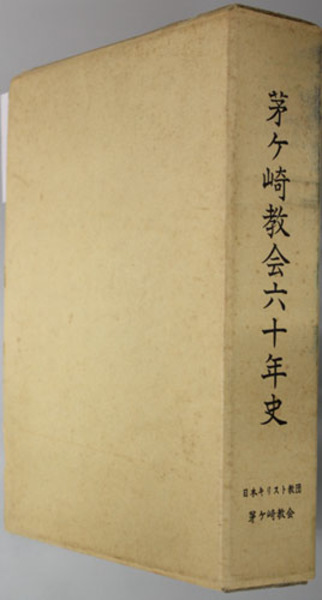 茅ケ崎教会六十年史
日本キリスト教団
茅ケ崎教会